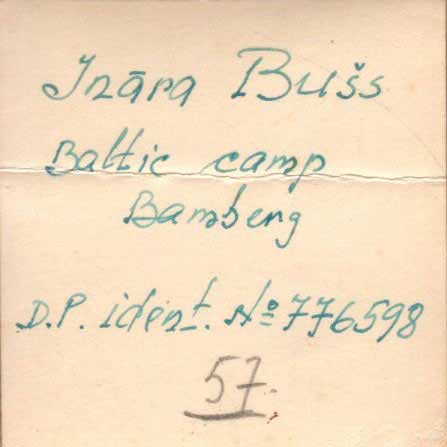 Ināra Bušs
Baltic camp
Bamberg
D.P. ident. № 776598
57.